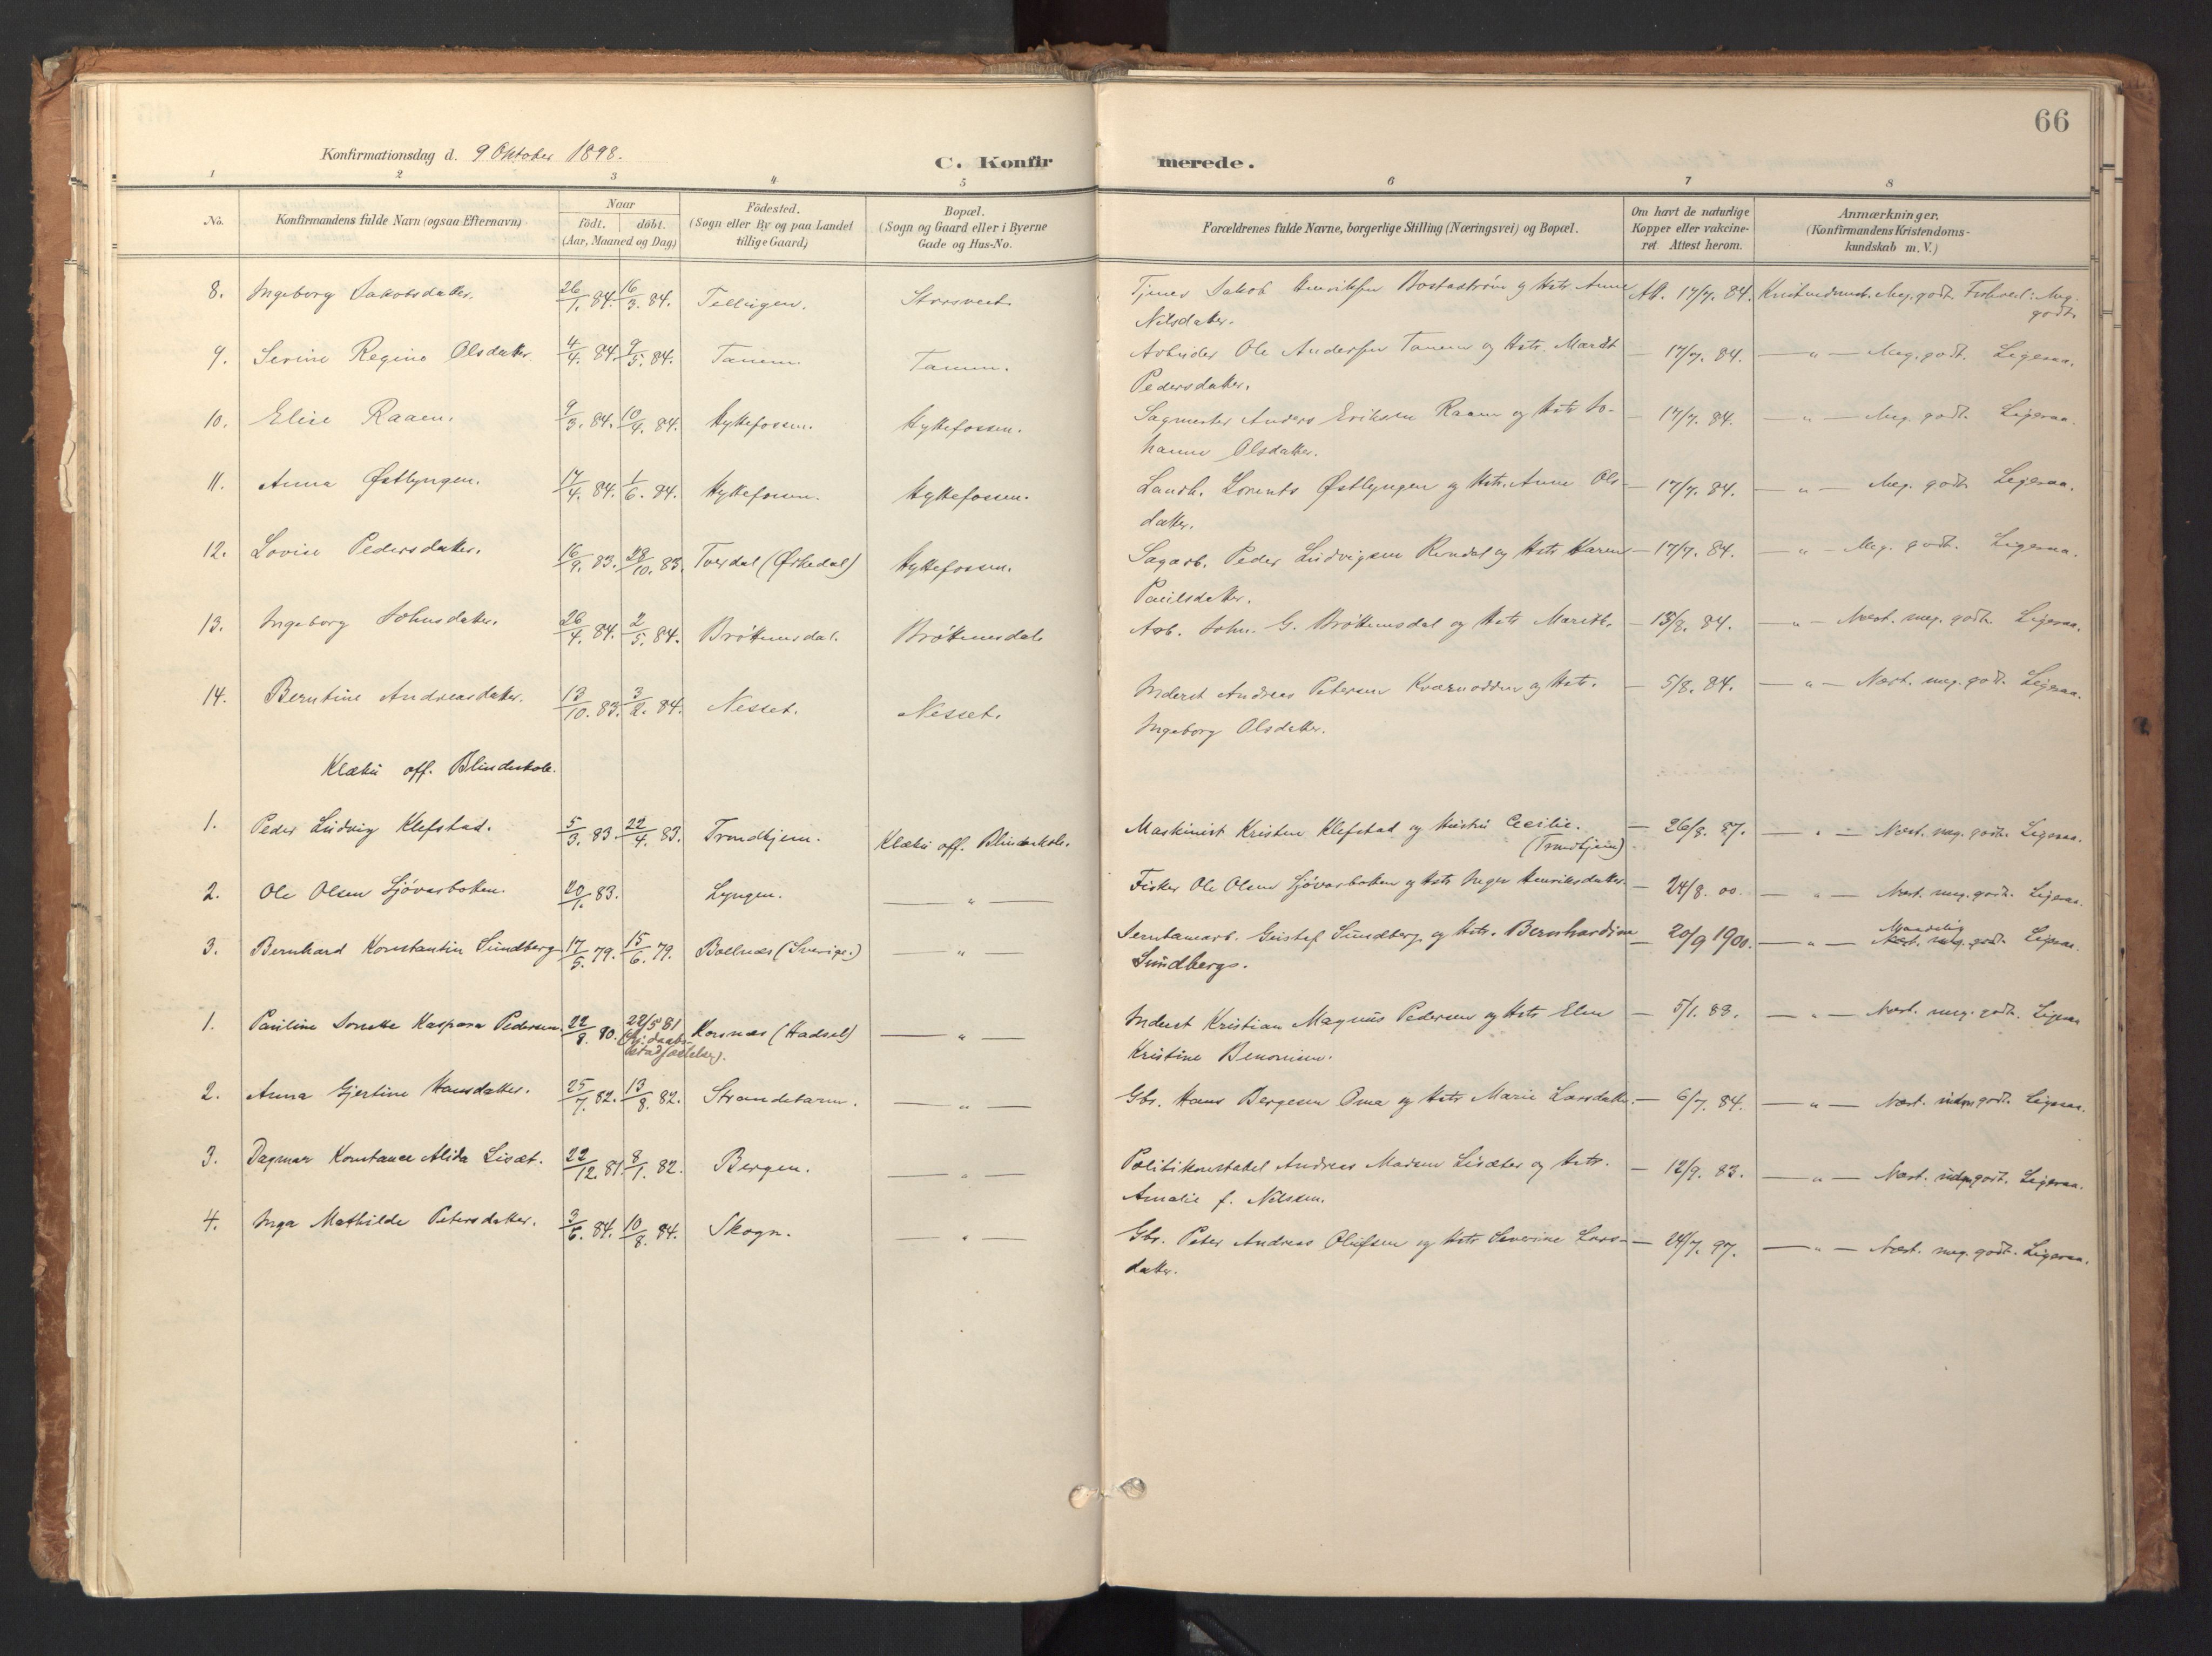 66
Konfirmationsdag d. 9 Oktober 1898.
C. Konfirmerede.
1 2 3 4 5 6 7 8
No.
Konfirmandens fulde Navn (ogsaa Efternavn)
Naar
födt. döbt.
(Aar, Maaned og Dag)
Födested.
(Sogn eller By og paa Landet
tillige Gaard)
Bopæl.
(Sogn og Gaard eller i Byerne
Gade og Hus-No.
Forældrenes fulde Navne, borgerlige Stilling (Næringsvei) og Bopæl.
Om havt de naturlige
Kopper eller vakcine-
ret. Attest herom.
Anmærkninger.
(Konfirmandens Kristendoms-
kundskab m. V.)
8. Ingeborg Jakobsdatter. 26/1. 84. 16/3. 84. Tellugen. Storsveet. Tjener Jakob Henriksen og Hstr. Anne Att. 17/7. 84. Meg. godt. Meg.
Nilsdatter. godt.
9. Serine Regine Olsdatter. 4/4. 84. 9/5. 84. Tanem. Tanem. Arbeider Ole Andersen Tanem og Hstr. Marit — 17/7. 84. — „ — Meg. godt. Ligesaa.
Pedersdatter.
10. Elise Raaen. 9/3. 84. 10/4. 84. Hyttefossen. Hyttefossen. Sagmester Anders Eriksen Raaen og Hstr. Jo- — 17/7. 84. — „ — Meg. godt. Ligesaa.
hanne Olsdatter.
11. Anna Østlyngen. 17/4. 84. 1/6. 84. Hyttefossen. Hyttefossen. Landh. Lorents Østlyngen og Hstr. Anne Ols- — 17/7. 84. — „ — Meg. godt. Ligesaa.
datter.
12. Lovise Pedersdatter. 16/9. 83. 28/10. 83. (Ørkedal) Hyttefossen. Sagarb. Peder Ludvigsen Rindal og Hstr. Karen — 17/7. 84. — „ — Meg. godt. Ligesaa.
Paulsdatter.
13. Ingeborg Johnsdatter. 26/4. 84. 2/5. 84. Bröttemsdal. Bröttemsdal. Arb. John. G. Bröttemsdal og Hstr. Marith. — 13/8. 84. — „ — Næst. meg. godt. Ligesaa.
14. Berntine Andreasdatter. 13/10. 83. 3/2. 84. Nesset. Nesset. Inderst Andreas Petersen Kværnodden og Hstr. — 5/8. 84. — „ — Næst. meg. godt. Ligesaa.
Ingeborg Olsdatter.
Klæbu off. Blindeskole.
1. Peder Ludvig Klefstad. 5/3. 83. 22/4. 83. Trondhjem. Klæbu off. Blindeskole. Maskinist Kristen Klefstad og Hustru Cecilie. — 26/8. 87. — „ — Næst. meg. godt. Ligesaa.
(Trondhjem)
2. Ole Olsen Sjövarbotten. 20/1. 83. Lyngen. — „ — Fisker Ole Olsen Sjövarbotten og Hstr. Inger Henriksdatter. — 24/8. 00. — „ — Næst. meg. godt. Ligesaa.
3. Bernhard Konstantin Sundberg 17/5. 79. 15/6. 79. Bollnæs (Sverige.) — „ — Gustaf Sundberg og Hstr. Bernhardine — 20/9 1900. — „ — Næst. meg. godt. Ligesaa.
Sundberg.
1. Pauline Kaspara Pedersen. 22/8. 80. 22/5 81 Korsnæs (Hadsel) — „ — Inderst Kristian Magnus Pedersen og Hstr. Elen — 5/1. 83. — „ — Næst. meg. godt. Ligesaa
(Hj.daabs-
stadfæstelse). Kristine Benonisen.
2. Anna Gjertine Hansdatter. 25/7. 82. 13/8. 82. Strandebarm. — „ — Gbr. Hans Bergesen Oma og Hstr. Marie Larsdatter. — 6/7. 84. — „ — Næst. godt. Ligesaa.
3. Dagmar Konstance Alida Lisæt. 22/12. 81. 8/1. 82. Bergen. — „ — Politikonstabel Andreas Madsen Lisæter og Hstr. — 12/9. 83. — „ — Næst. godt. Ligesaa.
Amalie f. Nilssen.
4. Inga Mathilde Petersdatter. 3/6. 84. 10/8. 84. Skogn. — „ — Gbr. Peter Andreas Olufsen og Hstr. Severine Lars- — 24/7. 97. — „ — Næst. meg. godt. Ligesaa.
datter.